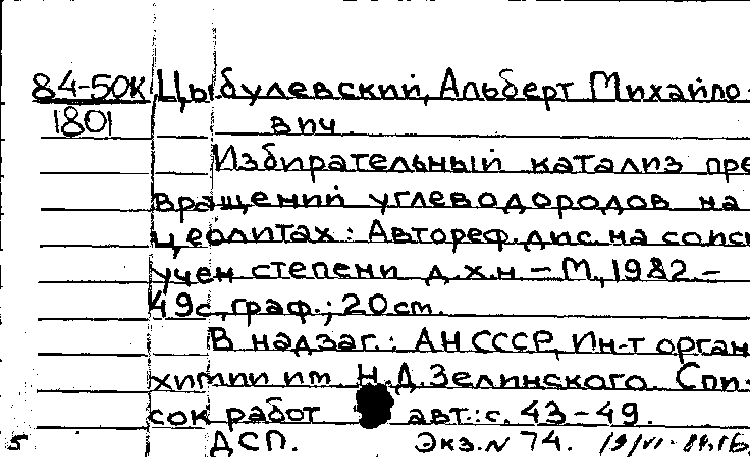 84-50К Цыбулевский, Альберт Михайло-
1801 вич.
Избирательный катализ пре
вращений углеводородов на
цеолитах: Автореф. дис. на соиск
учен степени д.х.н – М., 1982. –
49с., граф.; 20 см.
В надзаг.: АН СССР, Ин-т орган
химии им Н.Д. Зелинского. Спи-
сок работ авт.: с. 43-49.
5 ДСП. Экз. N 74.